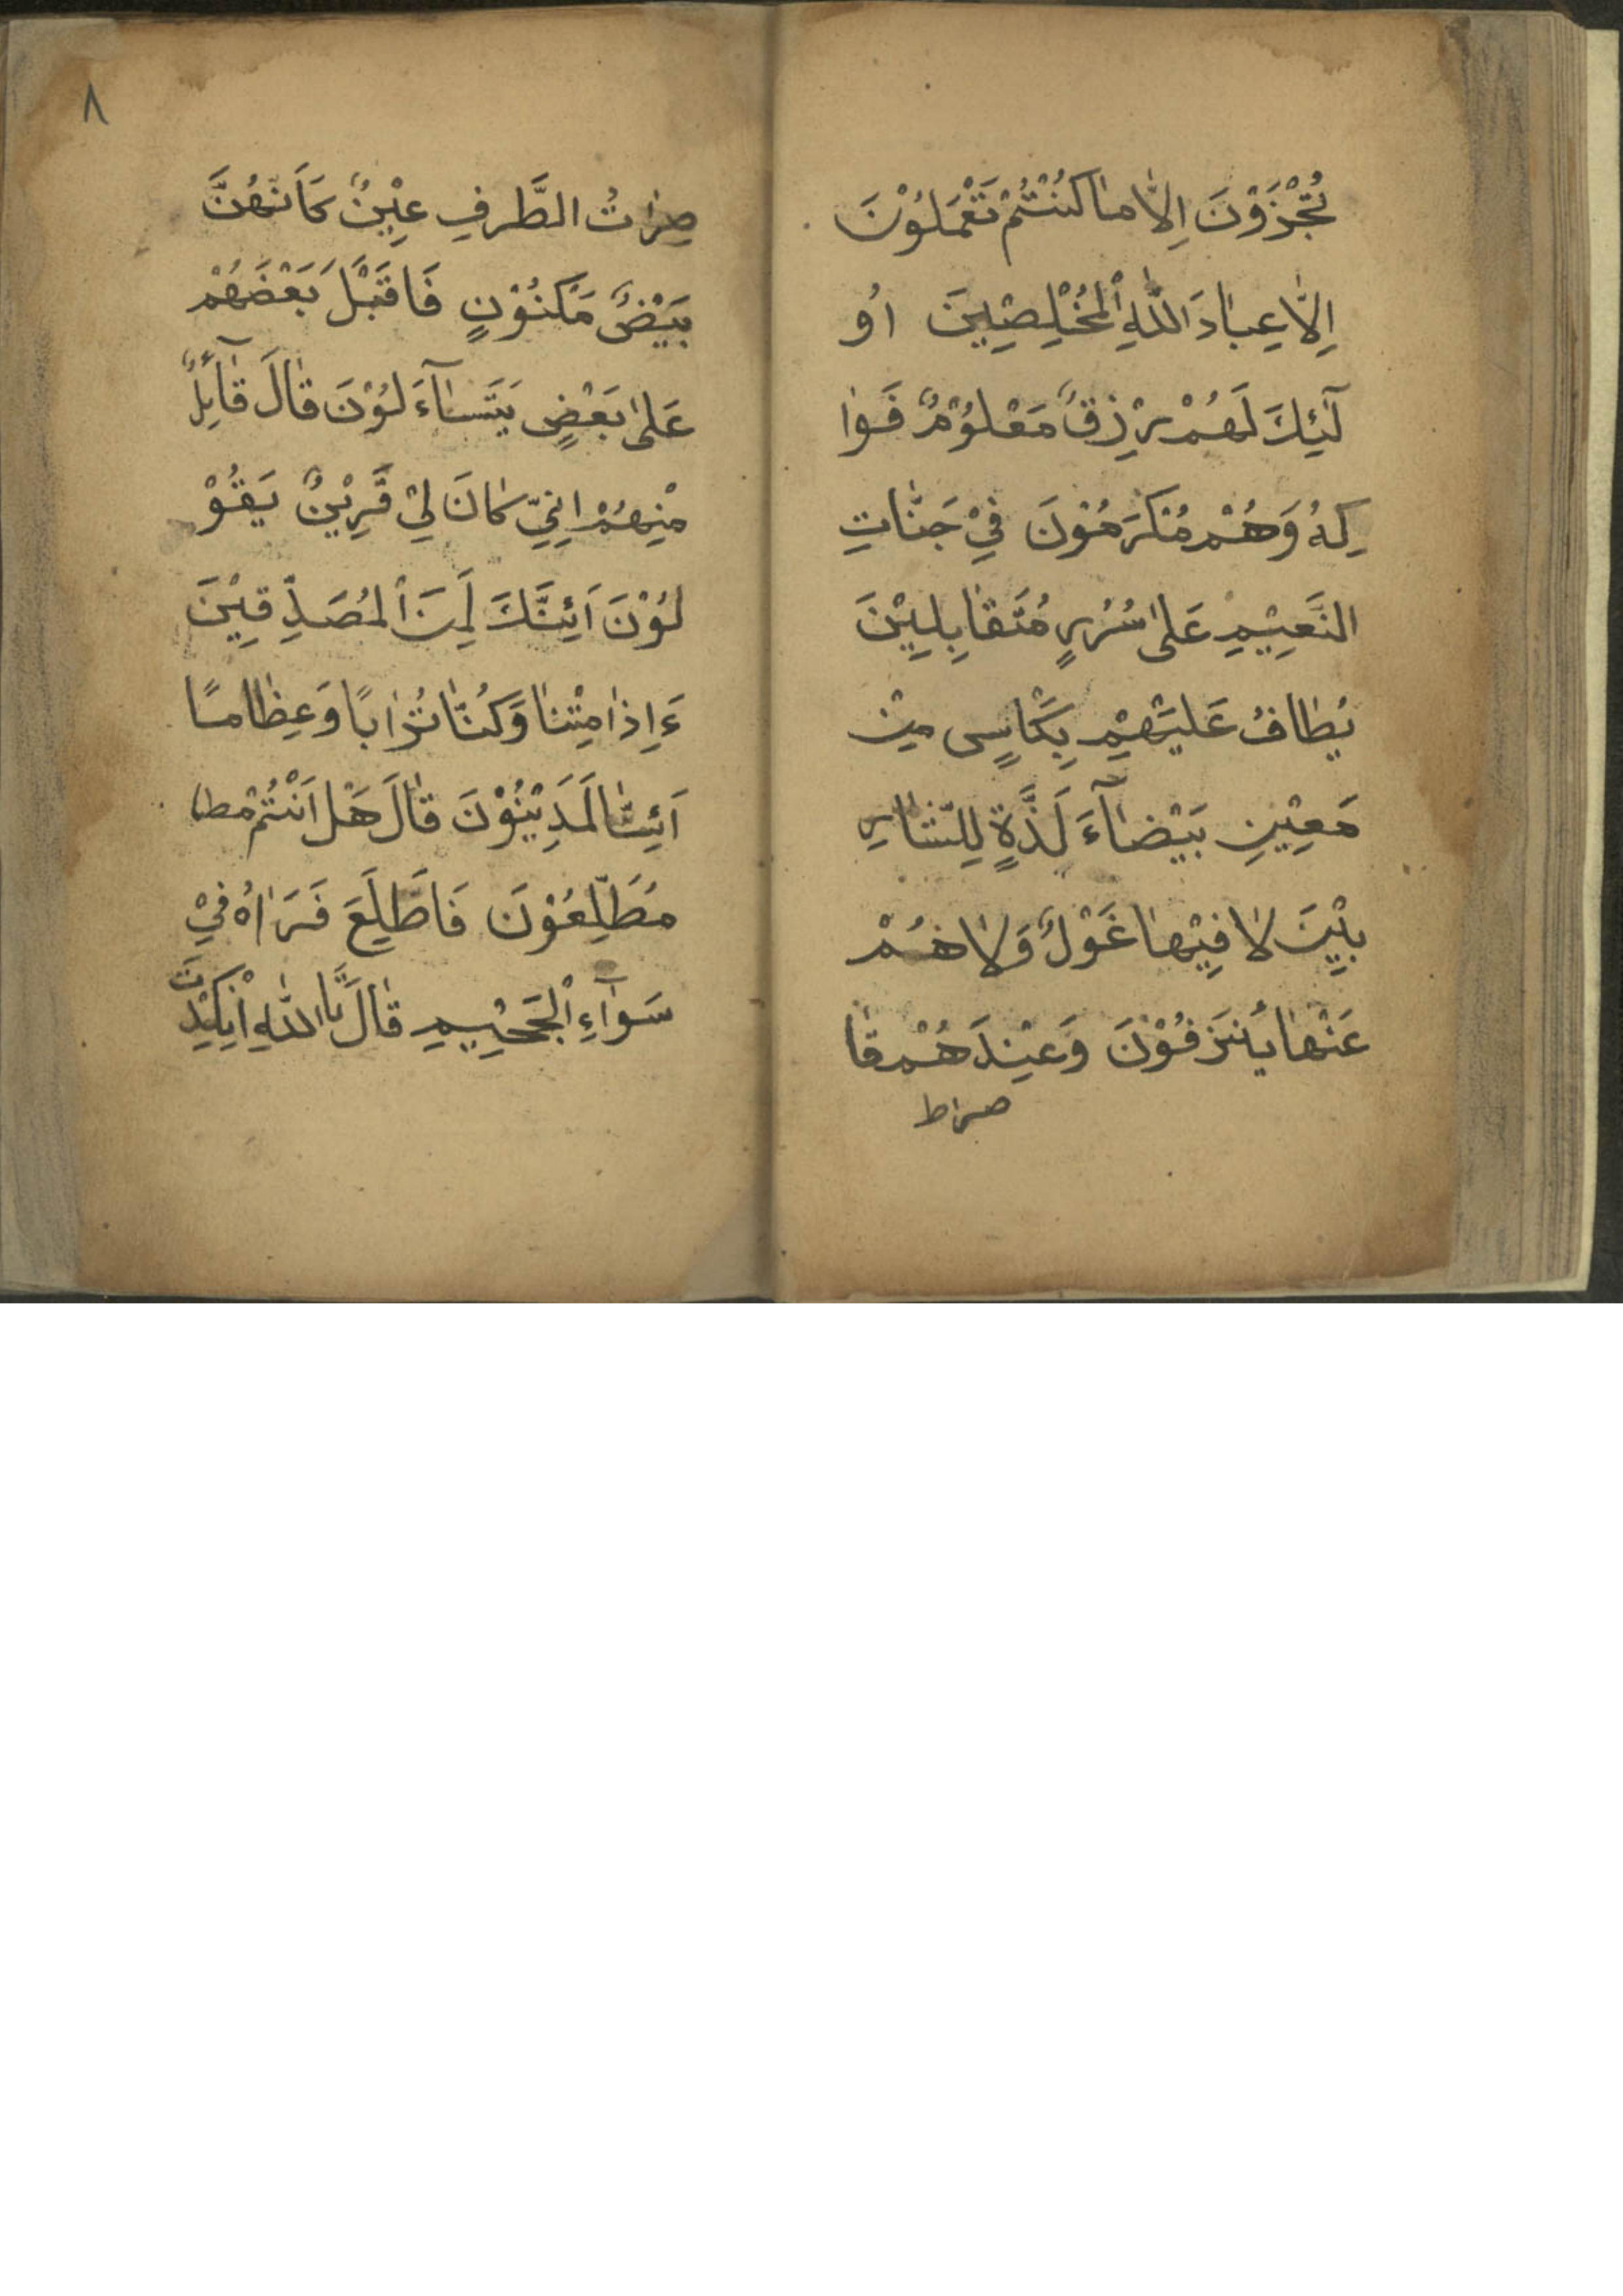 تُجْزَوْنَ اِلَّا مٰا كُنْتُمْ تَعْمَلُوْنَ
اِلَّا عِبٰادَ اللّٰهِ الْمُخْلِصِيْنَ اُو
لٰٓئِكَ لَهُمْ رِزْقٌ مَعْلُوْمٌ فَوٰا
كِهُ وَهُمْ مُكْرَمُوْنَ فِيْ جَنّٰاتِ
النَّعِيْمِ عَلىٰ سُرُرٍ مُتَقٰابِلِيْنَ
يُطٰافُ عَلَيْهِمْ بِكَاْسٍ مِنْ
مَعِيْنٍ بَيْضٰآءَ لَذَّةٍ لِلشّٰارِ
بِيْنَ لٰا فِيْهٰا غَوْلٌ وَلٰا هُمْ
عَنْهٰا يُنْزَفُوْنَ وَعِنْدَهُمْ قٰا
صراط
٨
صِرٰاتُ الطَّرفِ عِيْنٌ كَاَنَّهُنَّ
بَيْضٌ مَكْنُوْنٍ فَاقَبْلَ بَعْضَهُمْ
عَلىٰ بَعْضٍ يَتَسٰآءَلُوْنَ قٰالَ قٰآئِلٌ
مْنِهُمْ اِنِّيْ كٰانَ لِيْ قَرِيْنٌ يَقُوْ
لُوْنَ اَئِنَّكَ لَمِنَ الْمُصَدِّقِيْنَ
ءَاِذٰا مِتْنٰا وَكُنّٰا تُرٰابًا وَعِظٰامًا
اَئِنّٰا لَمَدِيْنُوْنَ قٰالَ هَلْ اَنْتُمْ مط
مُطَّلِعُوْنَ فَاطَّلِعَ فَرَاٰهُ فِيْ
سَوٰآءِ الْجَحِيْمِ قٰالَ تَاللّٰهِ اِنْ كِيْدْتَ